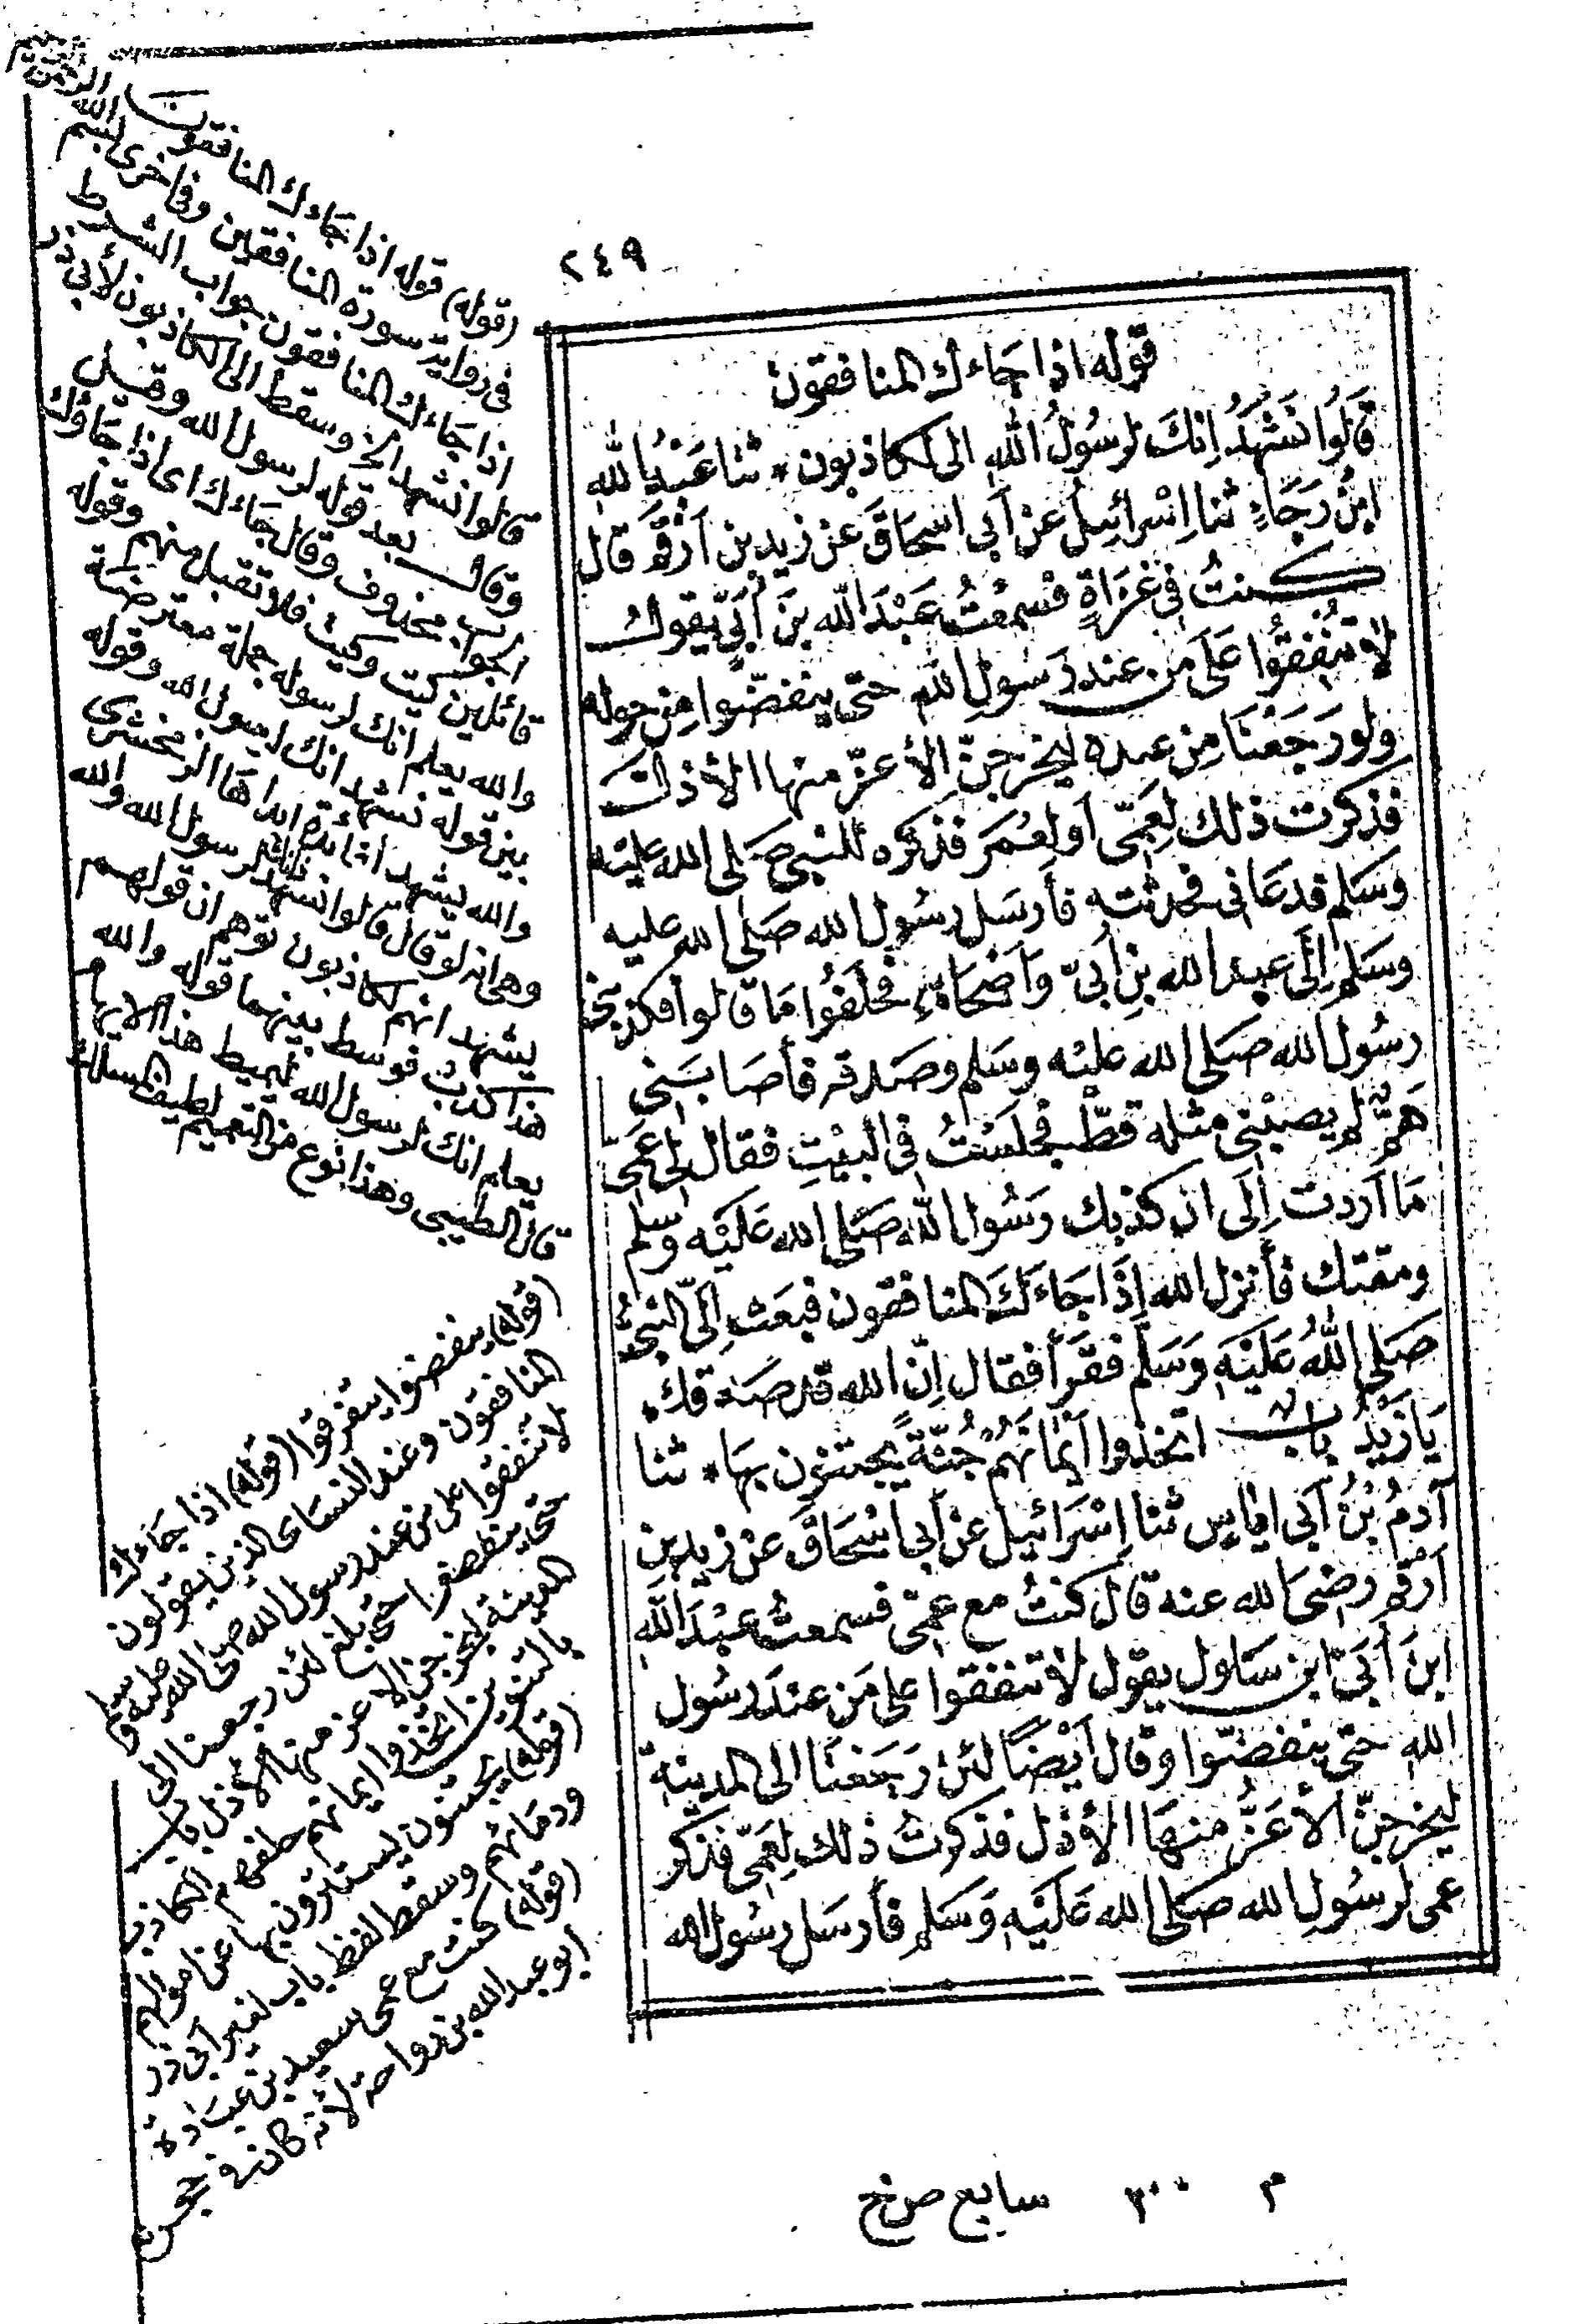 ٢٤٩
قوله اذا جاءك المنافقون
قَالُوا نَشْهَدُ إِنَّكَ لرَسُولُ اللهِ الى لكاذبون * ثنا عَبْدُ اللهِ
ابنُ رَجَاءٍ ثنا اِسْرائيل عَن أبي اسحَاقَ عَن زيدِ بن أرْقَمَ قال
كنتُ في غَزَاةٍ فسمعْتُ عَبْدَ الله بنَ أُبَيّ يقول
لا تنُفقُوا عَلَى من عند رسولِ الله حتى ينفضّوا مِن حوله
ولو رَجَعْنَا مِن عنده ليخرجنّ الأعزّ منها الأذل
فذكرت ذلك لِعَمّى أو لعُمَر فذكره للنبى صَلى الله عليْه
وَسَلم فدعَانى فحدثته فأرسَل رسُول الله صَلى الله عليه
وسَلم إلَى عبد الله بنِ أبىّ وَأصحَابه فحلَفُوا مَا قالوا فكذبنى
رسُول الله صَلى الله عليْه وسَلم وصَدقه فأصَابَنِى
هَمٌّ لم يصبْنى مثله قطّ فجلَسْتُ فى البيْتِ فقال لى عَمّى
مَا أردت اِلَى ان كذبك رسُول الله صَلى الله عَليْه وسلم
ومقتك فأنزل الله إذَا جَاءَكَ المنافقون فبعَث اِلَىّ النبىُّ
صَلى اللهُ عَليْهِ وَسَلم فقَرأ فقال اِنّ الله قد صَدقك
يَا زَيْدُ باب اتخذوا أيمانَهُمْ جُنّةً يجتنون بهَا * ثنا
آدمُ بْنُ أبى اياسٍ ثنا اِسْرَائيل عَن أبى اسْحَاقَ عَنْ زيدِ بنِ
أرقم رضىَ الله عنه قال كنتُ مع عمّى فسمعتُ عبْدَ اللهِ
ابنَ أُبَىّ ابن سَلول يقول لا تنفقوا على مَن عندَ رسُول
الله حتى ينفضّوا وقال أيْضًا لئن رَجَعْنَا الى المدينة
ليخرجنّ الأعَزُّ منهَا الأذل فذكرتُ ذلك لِعَمّى فذكر
عمى لرسُولِ الله صَلى الله عَليْهِ وَسَلم فأرسَل رسُول الله
(قوله) قوله اذا جَاءك المنافقون
فى رواية سورة المنافقين وفى اخرى بسم الله الرحمن الرحيم
اذا جَاءك المنافقون جواب الشرط
قالوا نشهد الخ وسقط الى لكاذبون لأبى ذر
وقال بعد قوله لرسول الله وقيل
الجواب محذوف وقال جَاءك اى اذا جَاؤك
قائلين كيت وكيت فلا تقبل منهم وقوله
والله يعلم انك لرسوله جملة معترضة
بين قوله نشهد انك لرسول الله وقوله
والله يشهد لفائدة ابداها الزمخشرى
وهى انه لو قال قالوا نشهد انك لرسول الله والله
يشهد انهم لكاذبون توهم ان قولهم
هذا كذب فوسط بينهما قوله والله
يعلم انك لرسول الله ليميط هذا الايهام
قال الطيبى وهذا نوع من التتميم لطيف المسلك
(قوله) ينفضوا يتفرقوا (قوله) اذا جَاءك
المنافقون وعند النساى الذين يقولون
لا تنفقوا على من عند رسول الله صلى الله عليه وسلم
حتى ينفضوا حتى بلغ لئن رجعنا الى
المدينة ليخرجن الاعز منها الأذل باب
بالتنوين اتخذوا ايمانهم حلفهم الكاذب
(قوله) يجتنون يستترون بها عن اموالهم
ودمائهم وسقط لفظ باب لغير أبى ذر
(قوله) كنت مع عمى سعيد بن عبادة
ابو عبد الله بن رواحة لانه كان فى حجره
م ٣٠٠ سابع ص خ